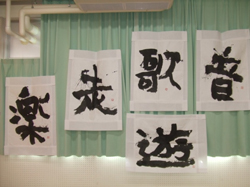 楽
走
歌
音
遊